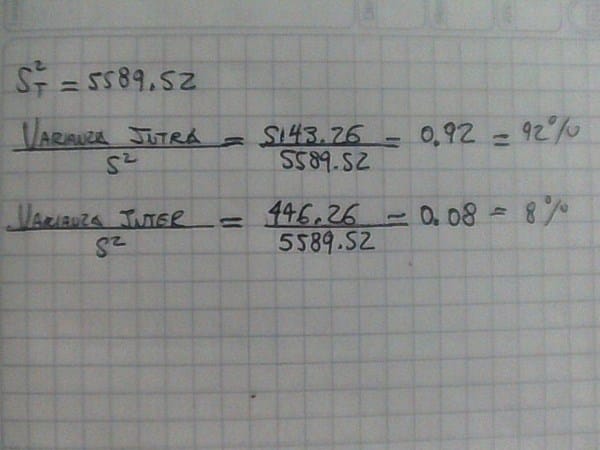 S²_T = 5589.52
VARIANZA INTRA / S² = 5143.26 / 5589.52 = 0.92 = 92%
VARIANZA INTER / S² = 446.26 / 5589.52 = 0.08 = 8%